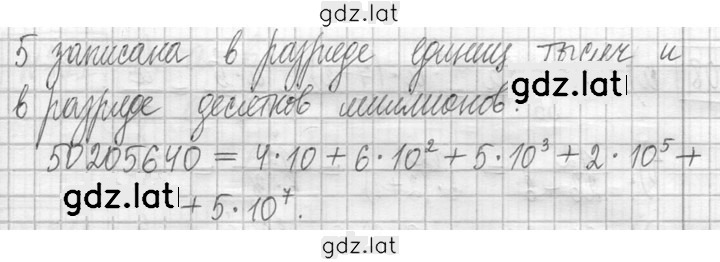 gdz.lat
5 записана в разряде единиц тысяч и
в разряде десятков миллионов.
gdz.lat
50205640 = 4·10 + 6·10² + 5·10³ + 2·10⁵ +
gdz.lat
+ 5·10⁷.
gdz.lat